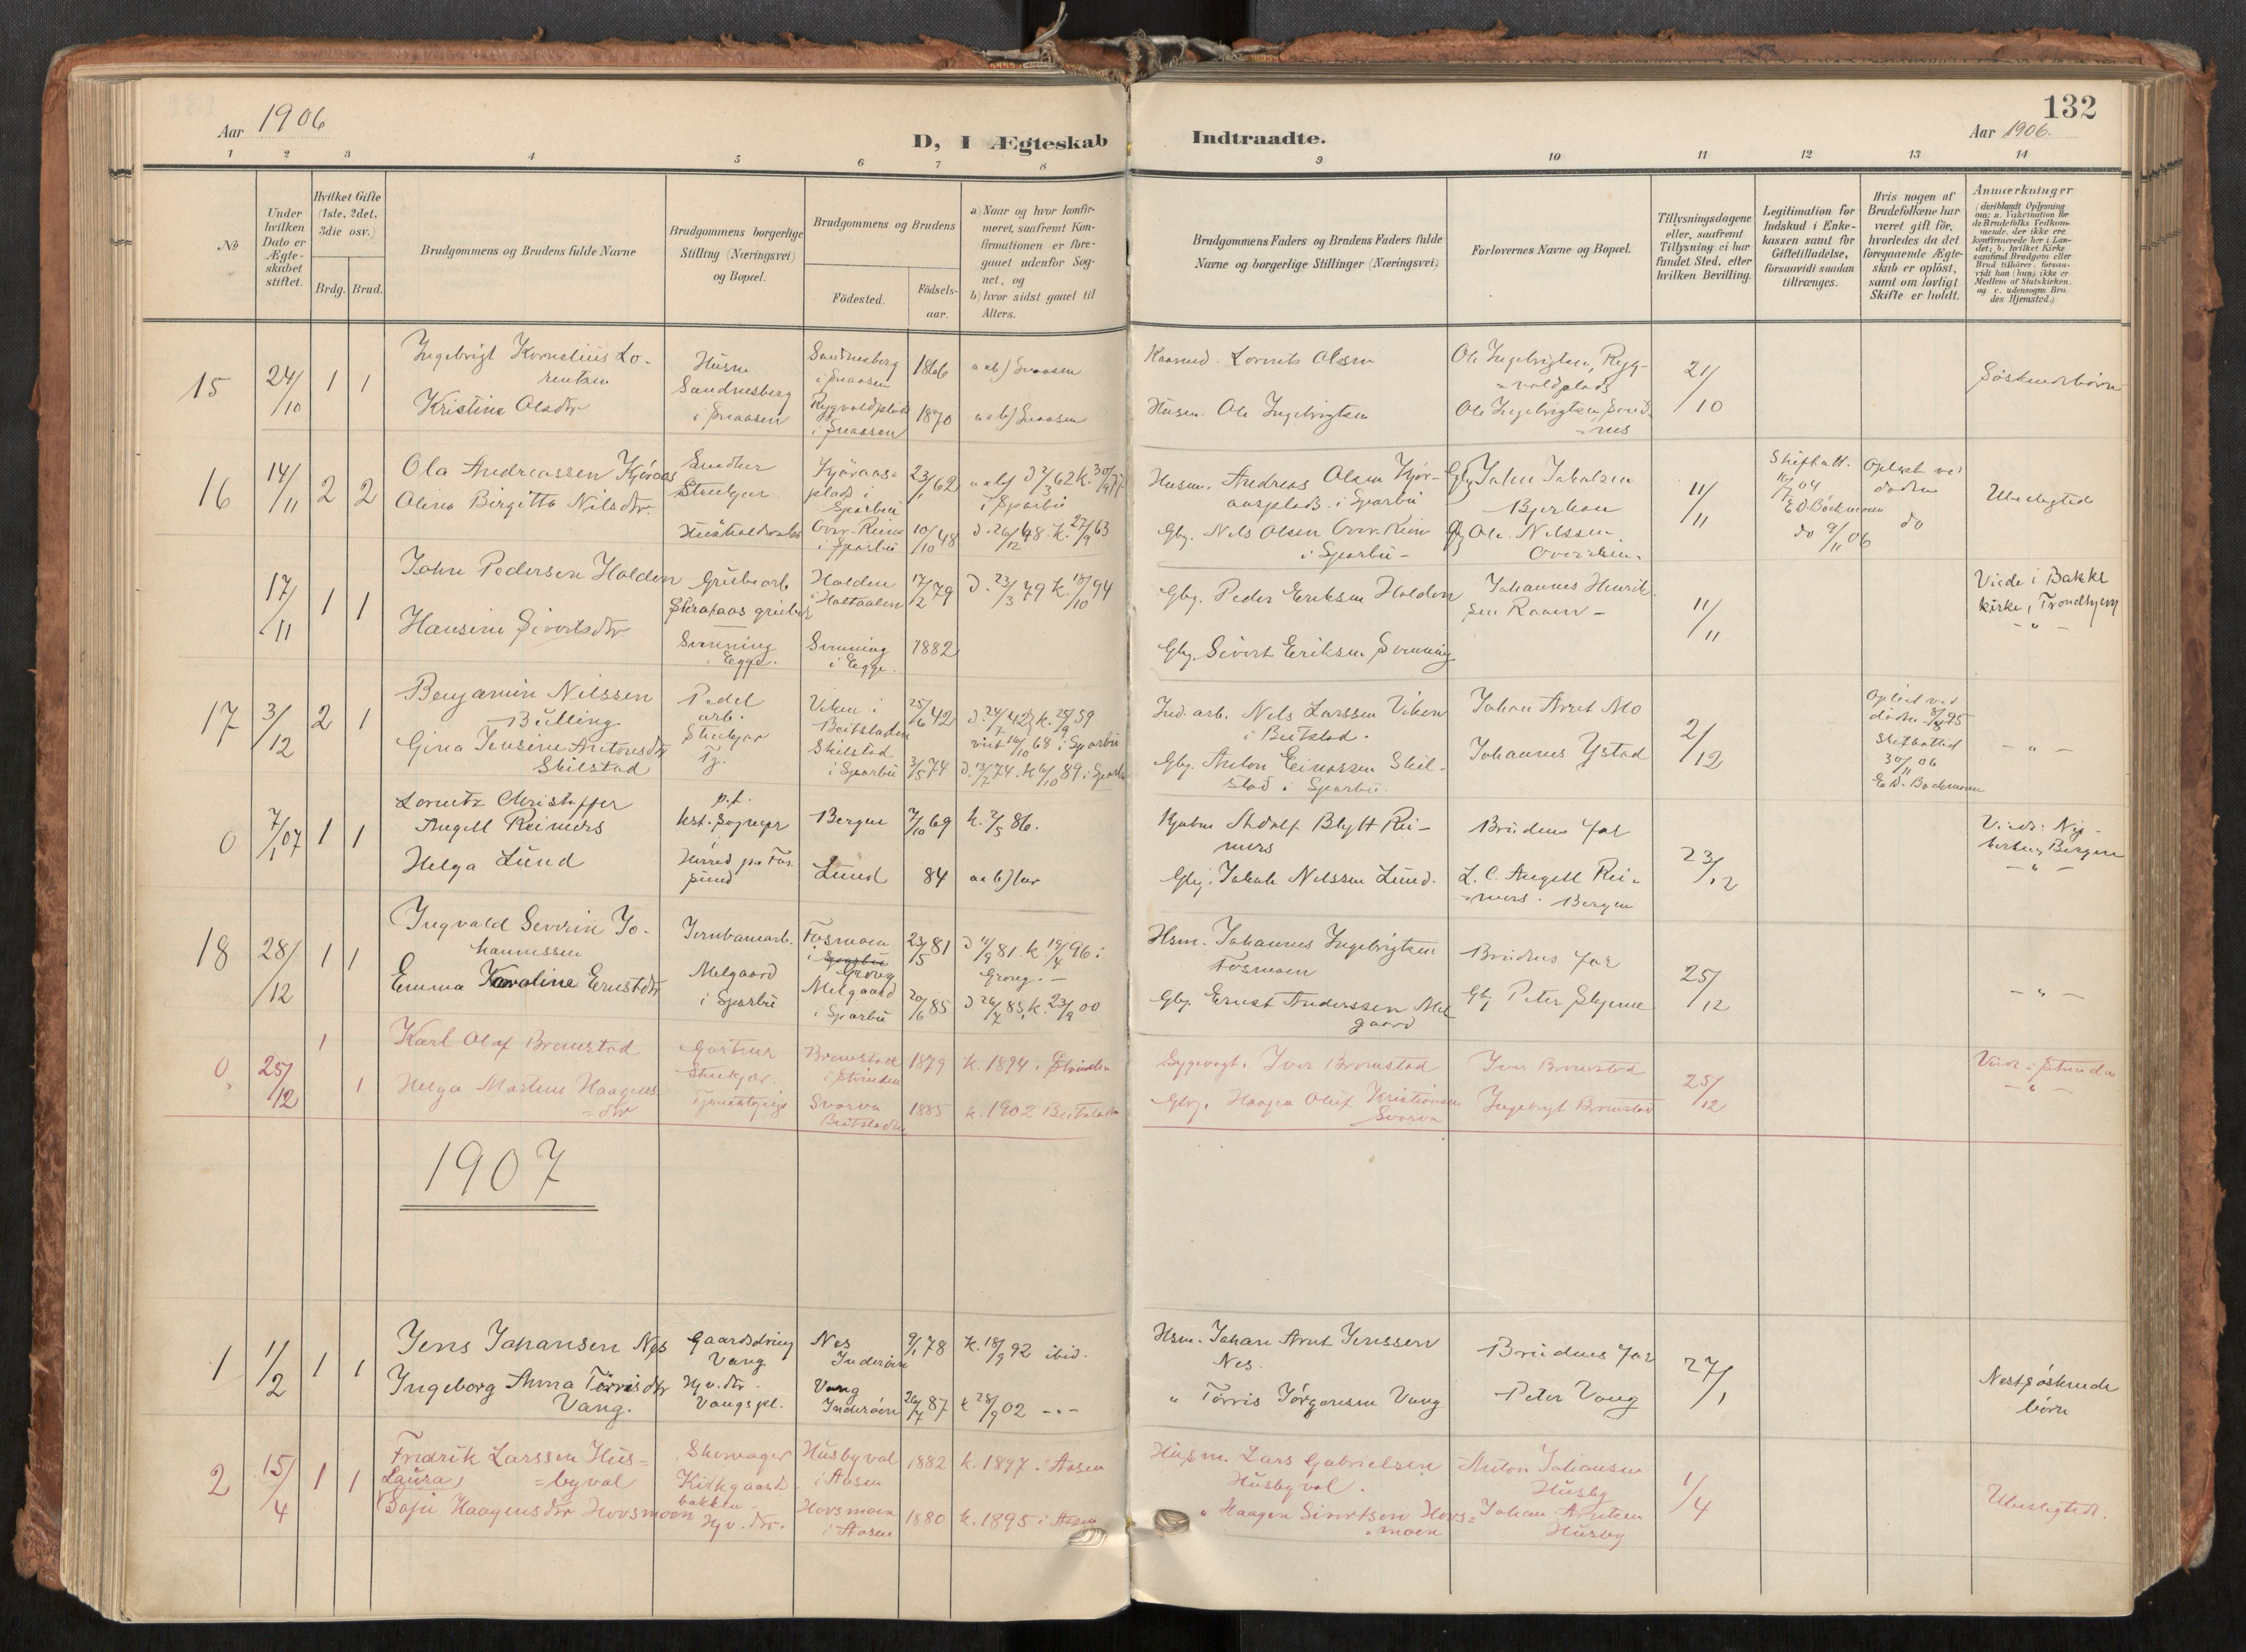 132
Aar 1906
Aar 1906.
D, I Ægteskab Indtraadte.
1 2 3 4 5 6 7 8 9 10 11 12 13 14
No
Under
hvilken
Dato er
Ægte-
skabet
stiftet.
Hvilket Gifte
(1ste, 2det,
3die osv.)
Brdg. Brud.
Brudgommens og Brudens fulde Navne
Brudgommens borgerlige
Stilling (Næringsvei)
og Bopæl.
Brudgommens og Brudens
Födested.
Födsels-
aar.
a) Naar og hvor konfir-
meret, saafremt Kon-
firmationen er fore-
gaaet udenfor Sog-
net, og
b) hvor sidst gaaet til
Alters.
Brudgommens Faders og Brudens Faders fulde
Navne og borgerlige Stillinger (Næringsvei)
Forlovernes Navne og Bopæl.
Tillysningsdagene
eller, saafremt
Tillysning ei har
fundet Sted, efter
hvilken Bevilling.
Legitimation for
Indskud i Enke-
kassen samt for
Giftetilladelse,
forsaavidt saadan
tiltrænges.
Hvis nogen af
Brudefolkene har
været gift för,
hvorledes da det
foregaaende Ægte-
skab er oplöst,
samt om lovligt
Skifte er holdt.
Anmærkninger
(deriblandt Oplysning
om: a. Vakcination for
de Brudefolks Vedkom-
mende, der ikke ere
konfirmerede her i Lan-
det; b. hvilket Kirke
samfund Brudgom eller
Brud tilhører, forsaa-
vidt han (hun) ikke er
Medlem af Statskirken,
og c. udensogns Bru
des Hjemsted.)
15
24/10
1 1
Ingebrigt Kornelius Lo-
rentsen
Kristine Olsdtr
Husm
Sandnesberg
i Snaasen
Sandnesberg
i Snaasen
1866
a & b) Snaasen
i Snaasen
1870
a & b) Snaasen
Lornts Olsen
Husm. Ole Ingebrigtsen
Ole Ingebrigtsen,
Ole Ingebrigtsen
21/10
Söskendebörn
16
14/11
2 2
Ola Andreassen Kjöraas
Olina Birgitta Nilsdtr.
Smedker
Stenkjær
plads i
Sparbu
23/1 62
i Sparbu
i Sparbu
10/10 48
D. 26/12 48 k. 27/9 63
Husm. Andreas Olsen Kjör-
aasplads i Sparbu
Gbg. Nels Olsen
i Sparbu -
Gbg Ole Nilssen
11/11
Skifteatt.
E.D. Böckman
do 9/11 06
Oplöst ved
döden
do
Ubeslegtede
17/11
1 1
John Pedersen Holden
Hansine Sivertsdtr
Grubearb
Semning
i Egge.
Holden
i Holtaalen
17/12 79
D. 23/3 79 k. 18/10 94
Semning
i Egge.
1882
Gbg. Peder Eriksen Holden
Gbg. Sivert Eriksen Semning
Johannes Henrik-
sen Raaen -
11/11
Viede i Bakke
kirke, Trondhjem
- " -
17
3/12
2 1
Benjamin Nilssen
Bülling
Gina Jensine Antonsdtr
Skilstad
Pedel
arb.
Stenkjær
Tj.
Viken i
Beitstaden
Skilstad
i Sparbu
25/6 42
3/5 74
Ind. arb. Nels Larssen Viken
i Beitstad.
Gbg. Anton Einarssen Skil-
stad i Sparbu.
Johan Arnt Mo
Johannes Ystad
2/12
Oplöst ved
30/11 06
E.D. Böckman
- " -
0
7/1 07
1 1
Lorentz Christoffer
Angell Reimers
Helga Lund
p.t.
Bergen
7/10 69
k. 2/5 86.
Lund
84
a & b) her
Kjöbm Adolf Blytt Rei-
mers
Gbg. Jakob Nilssen Lund.
Brudens far
L.C. Angell Rei-
mers. Bergen
23/12
- " -
18
28/12
1 1
Ingvald Severin Jo-
hannessen
Emma Karoline Ernstdtr
Jernbanearb.
Melgaard
i Sparbu
Fosmoen
i Sparbu
Grong
Melgaard
i Sparbu
23/5 81
20/6 85
D 11/9 81. k. 19/4 96 i
Grong. -
D 26/7 85, k. 23/9 00
Hsm. Johannes Ingebrigtsen
Fosmoen
Gbg. Ernst Anderssen Mel
gaard
Brudens far
Gbg Peter Skjerve
25/12
- " -
0
25/12
1
1
Karl Olaf Bromstad
Helga Martine Haagens-
dtr
Gartner
Stenkjær.
Bromstad
i Strinden
1879
k. 1894 i Strinden
Svarva
Beitstaden
1885
k. 1902 Beitstaden
Iver Bromstad
Gbg. Haagen Oluf Kristiansen
Svarva
Iver Bromstad
Ingebrigt Bromstad
25/12
Viede i Strinden
- " -
1907
1
1/2
1 1
Jens Johansen Nes
Ingeborg Anna Törrisdtr
Vang.
Gaardsdreng
Vang
Hjv. dtr.
Vangspl.
Nes
Inderöen
Vang
Inderöen
9/1 78
26/7 87
k. 18/9 92 ibid.
k 28/9 02 - " -
Hsm. Johan Arnt Jenssen
Nes.
" Törris Jörgensen Vang
Brudens far
Peter Vang
27/1
Nestsöskende
börn
2
15/4
1 1
Fredrik Larssen Hus-
byval
Laura,
Sofie Haagensdtr Hovsmoen
Skomager
Kirkgaards
bakken -
Hjv. dtr.
Husbyval
i Aasen
Hovsmoen
i Aasen
1882
1880
k. 1897 i Aasen
k. 1895 i Aasen
Husm. Lars Gabrielsen
Husbyval.
" Haagen Sivertsen Hovs-
moen
Anton Johansen
Husby
Johan Arntsen
Husby
1/4
Ubeslegtede.